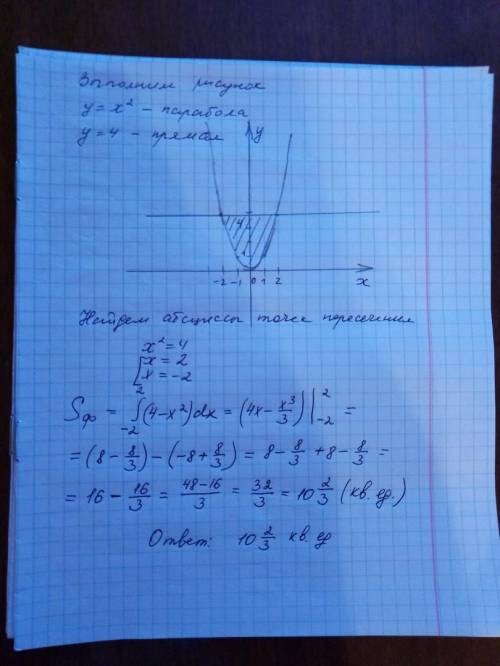 Выполним рисунок
y = x² – парабола
y = 4 – прямая
y
4
-2 -1 0 1 2
x
Найдем абсциссы точек пересечения
x² = 4
[x = 2
[x = -2
Sф = ∫₋₂² (4-x²)dx = (4x - x³/3) |₋₂² =
= (8 - 8/3) - (-8 + 8/3) = 8 - 8/3 + 8 - 8/3 =
= 16 - 16/3 = (48-16)/3 = 32/3 = 10 2/3 (кв. ед.)
Ответ: 10 2/3 кв. ед